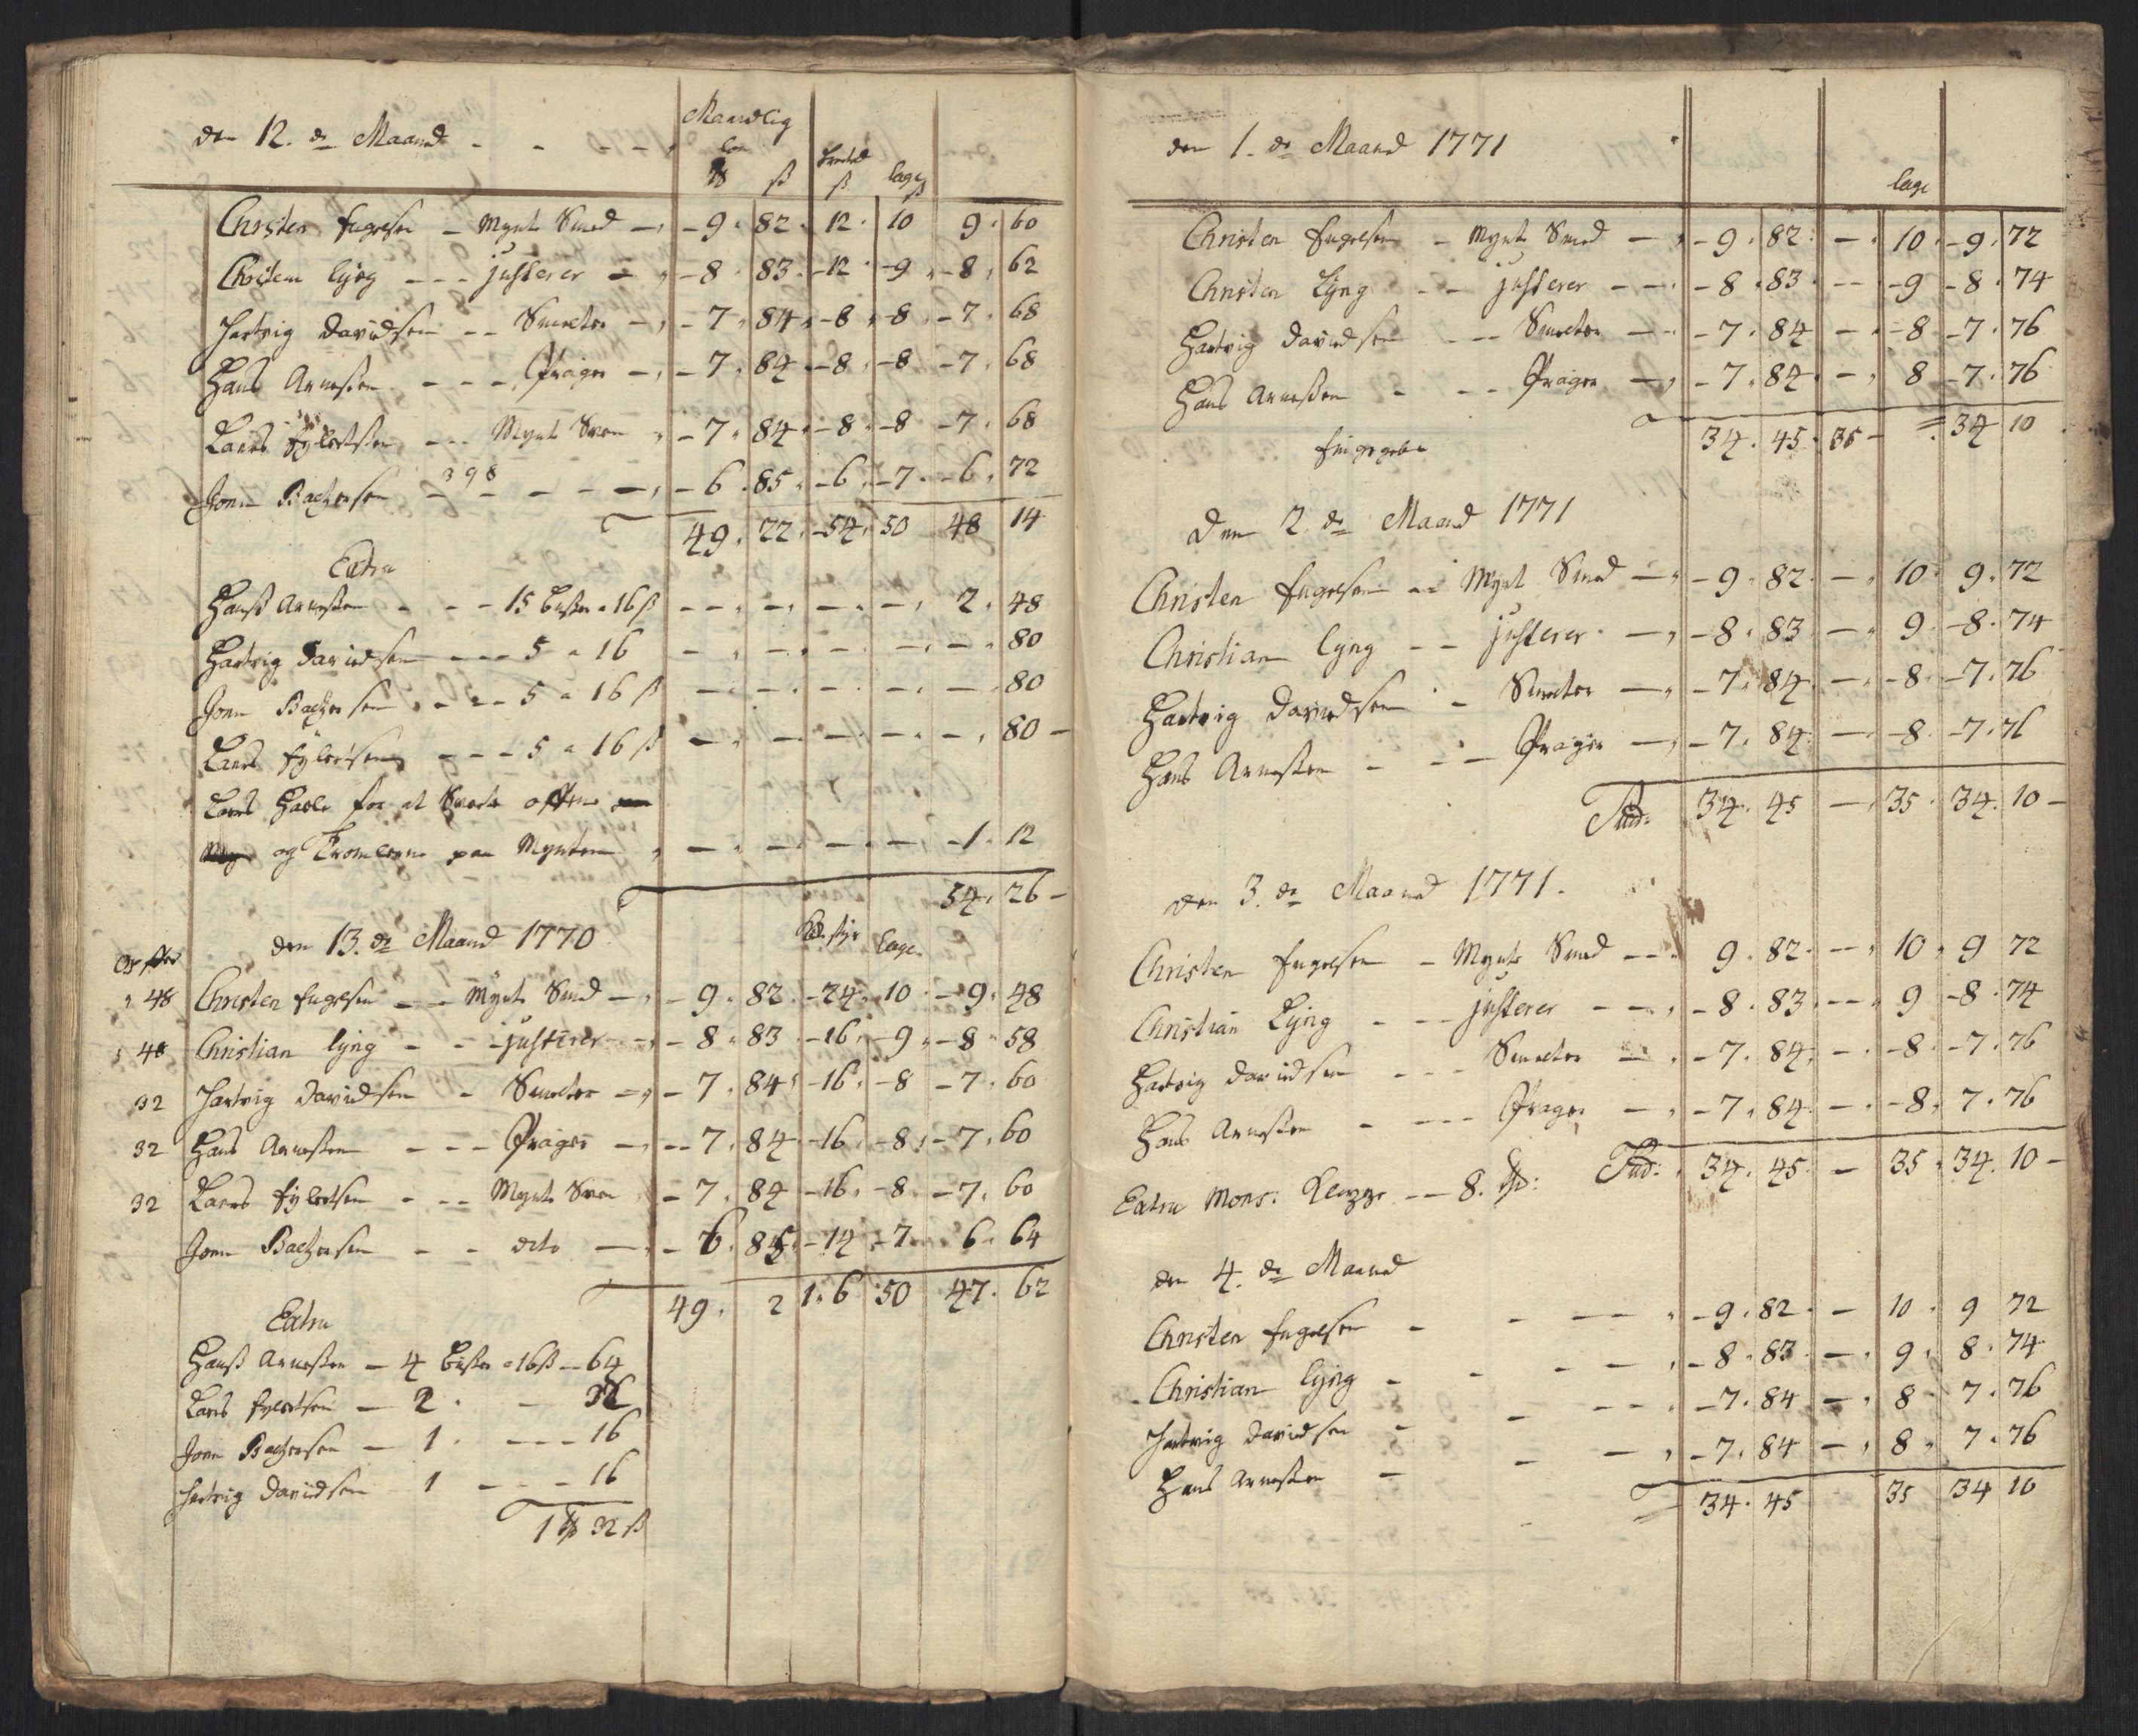 den 12. de Maaned - - - -
Maandlig
løn
ß ß lage ß
Christen Engelsen - Mynt Smed - 9. 82. 12. 10 9. 60
Christian Lyng - - - justerer - 8. 83. 12. 9. 8. 62
Hartvig Davidsen - - Smelter - 7. 84. 8. 8. 7. 68
Hans Arnesen - - - Præger - 7. 84. 8. 8. 7. 68
Laers Eylertsen - - - Mynt Sven 7. 84. 8. 8. 7. 68
398
Joen Bachersen - - - - 6. 85. 6. 7. 6. 72
49. 22. 54. 50 48 14
Extra
Hanß Arnesen - - - 15 a 16 ß - - - - 2. 48
Hartvig Davidsen - - - 5 a 16 - - - - - 80
Joen Bachersen - - - 5 a 16 ß - - - - - 80
Laers Eylertsen - - - 5 a 16 ß - - - - - 80 -
Laers for at
og paa Mynten - - - - 1. 12
54. 26 -
den 13. de Maaned 1770 lage
48 Christen Engelsen - - Mynt Smed - 9. 82. 24. 10. 9. 48
48 Christian Lyng - - - justerer - 8. 83. 16. 9. 8. 58
32 Hartvig Davidsen - Smelter - 7. 84. 16. 8. 7. 60
32 Hans Arnesen - - - Præger - 7. 84. 16. 8. 7. 60
32 Laers Eylertsen - - - Mynt Sven - 7. 84 - 16. 8. 7. 60
Joen Bachersen - - dito - 6. 85. 14. 7. 6. 64
49. 2 1. 6 50 47. 62
Extra
Hanß Arnesen - 4 a 16 ß - 64
Laers Eylertsen - 2. - 32
Joen Bachersen - 1. - - - 16
Hartvig Davidsen 1 - - - 16
1 32 ß
den 1. de Maaned 1771
lage
Christen Engelsen - Mynt Smed - 9. 82. - 10. 9. 72
Christen Lyng - - justerer - - 8. 83. - 9 - 8. 74
Hartvig Davidsen - - - Smelter - 7. 84 - 8 - 7. 76
Hans Arnesen - - - Præger - 7. 84. - 8 - 7. 76
34. 45. 35 - 34 10
Den 2. de Maaned 1771
Christen Engelsen - Mynt Smed - 9. 82. - 10. 9. 72
Christian Lyng - - justerer - 8. 83 - 9. 8. 74
Hartvig Davidsen - Smelter - 7. 84. - 8. 7. 76
Hans Arnesen - - - Præger - 7. 84. - 8. 7. 76
34. 45 - 35. 34. 10 -
den 3. de Maaned 1771.
Christen Engelsen - Mynt Smed - - 9. 82. - 10. 9 72
Christian Lyng - - - justerer - - 8. 83. - 9 - 8. 74
Hartvig Davidsen - - - Smelter - 7. 84. - 8. 7. 76
Hans Arnesen - - - - Præger - 7. 84. - 8. 7. 76
34. 45. - 35. 34. 10 -
Extra Mons: - - 8.
den 4. de Maaned
Christen Engelsen - - - - 9. 82. - 10. 9 72
Christian Lyng - - - - 8. 83. - 9. 8. 74
Hartvig Davidsen - - - - 7. 84 - 8. 7. 76
Hans Arnesen - - - 7. 84 - 8. 7. 76
34. 45 35 34 10